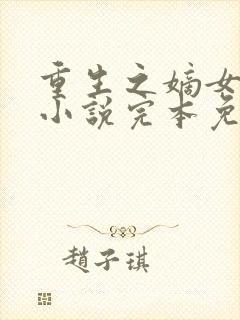 重生之嫡女
小说完本免
赵子琪